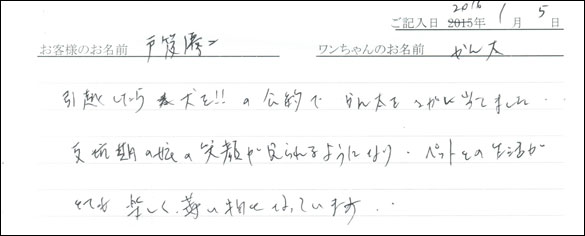 ご記入日 2016 2015年 1月 5日
お客様のお名前 戸 ワンちゃんのお名前 かん太
引越したら犬を!!の公約でかん太をさがし当てました・・
反抗期の娘の笑顔が見られるようになり・ペットとの生活が
とても楽しく、 なっています・・